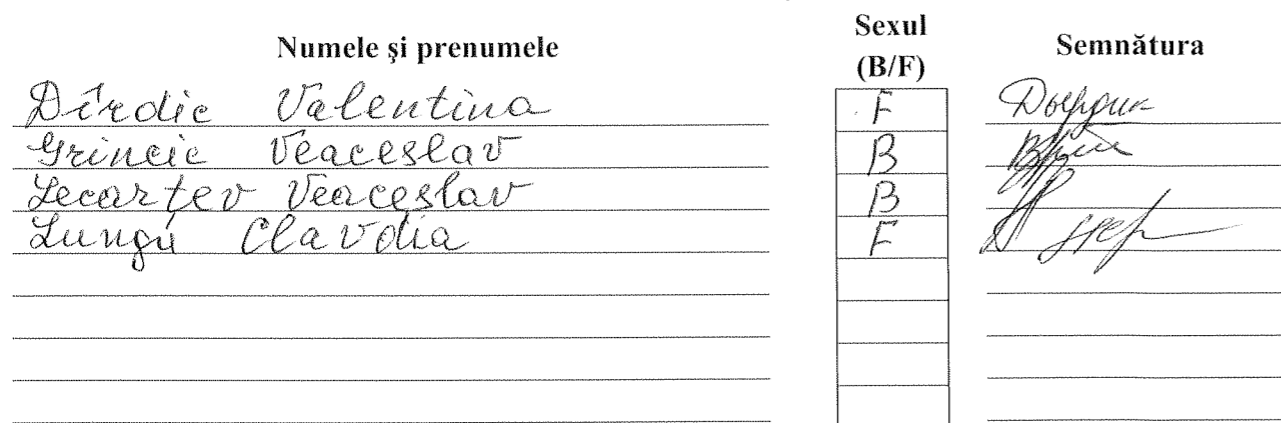 Numele şi prenumele Sexul (B/F) Semnătura
Dîrdic Valentina F
Grincic Veaceslav B
Lecarţev Veaceslav B
Lungu Clavdia F